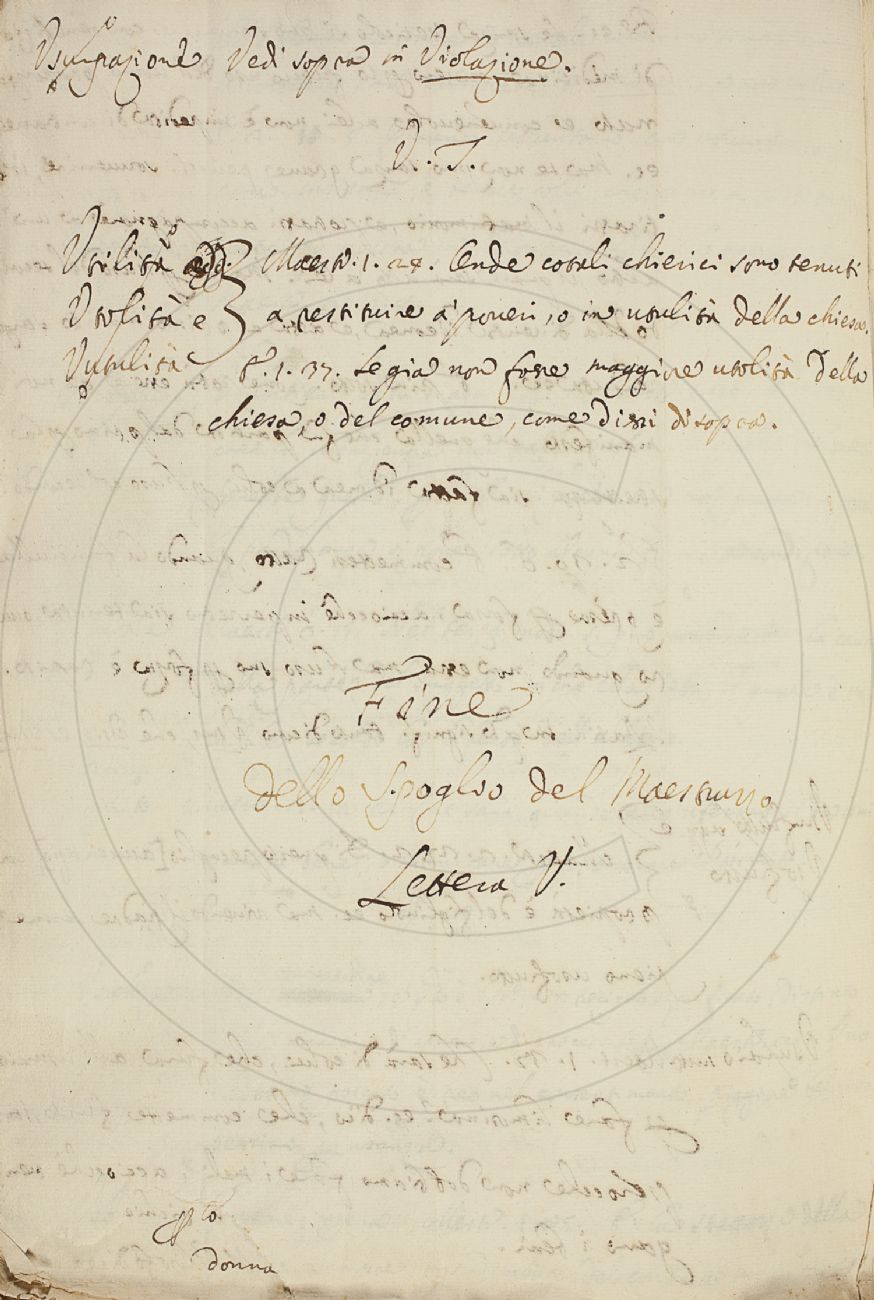 Usurpazione Vedi sopra in Violazione.
V. T.
Utilità Maestr. 1. 24. Onde cotali chierici sono tenuti
Utolità e a restituire a' poveri, o in utulità della chiesa.
Vutulità E. 1. 37. Se già non fosse maggiore utolità della
chiesa, o del comune, come dissi di sopra.
Fine
dello Spoglio del Maestruzzo
Lettera V.
donna